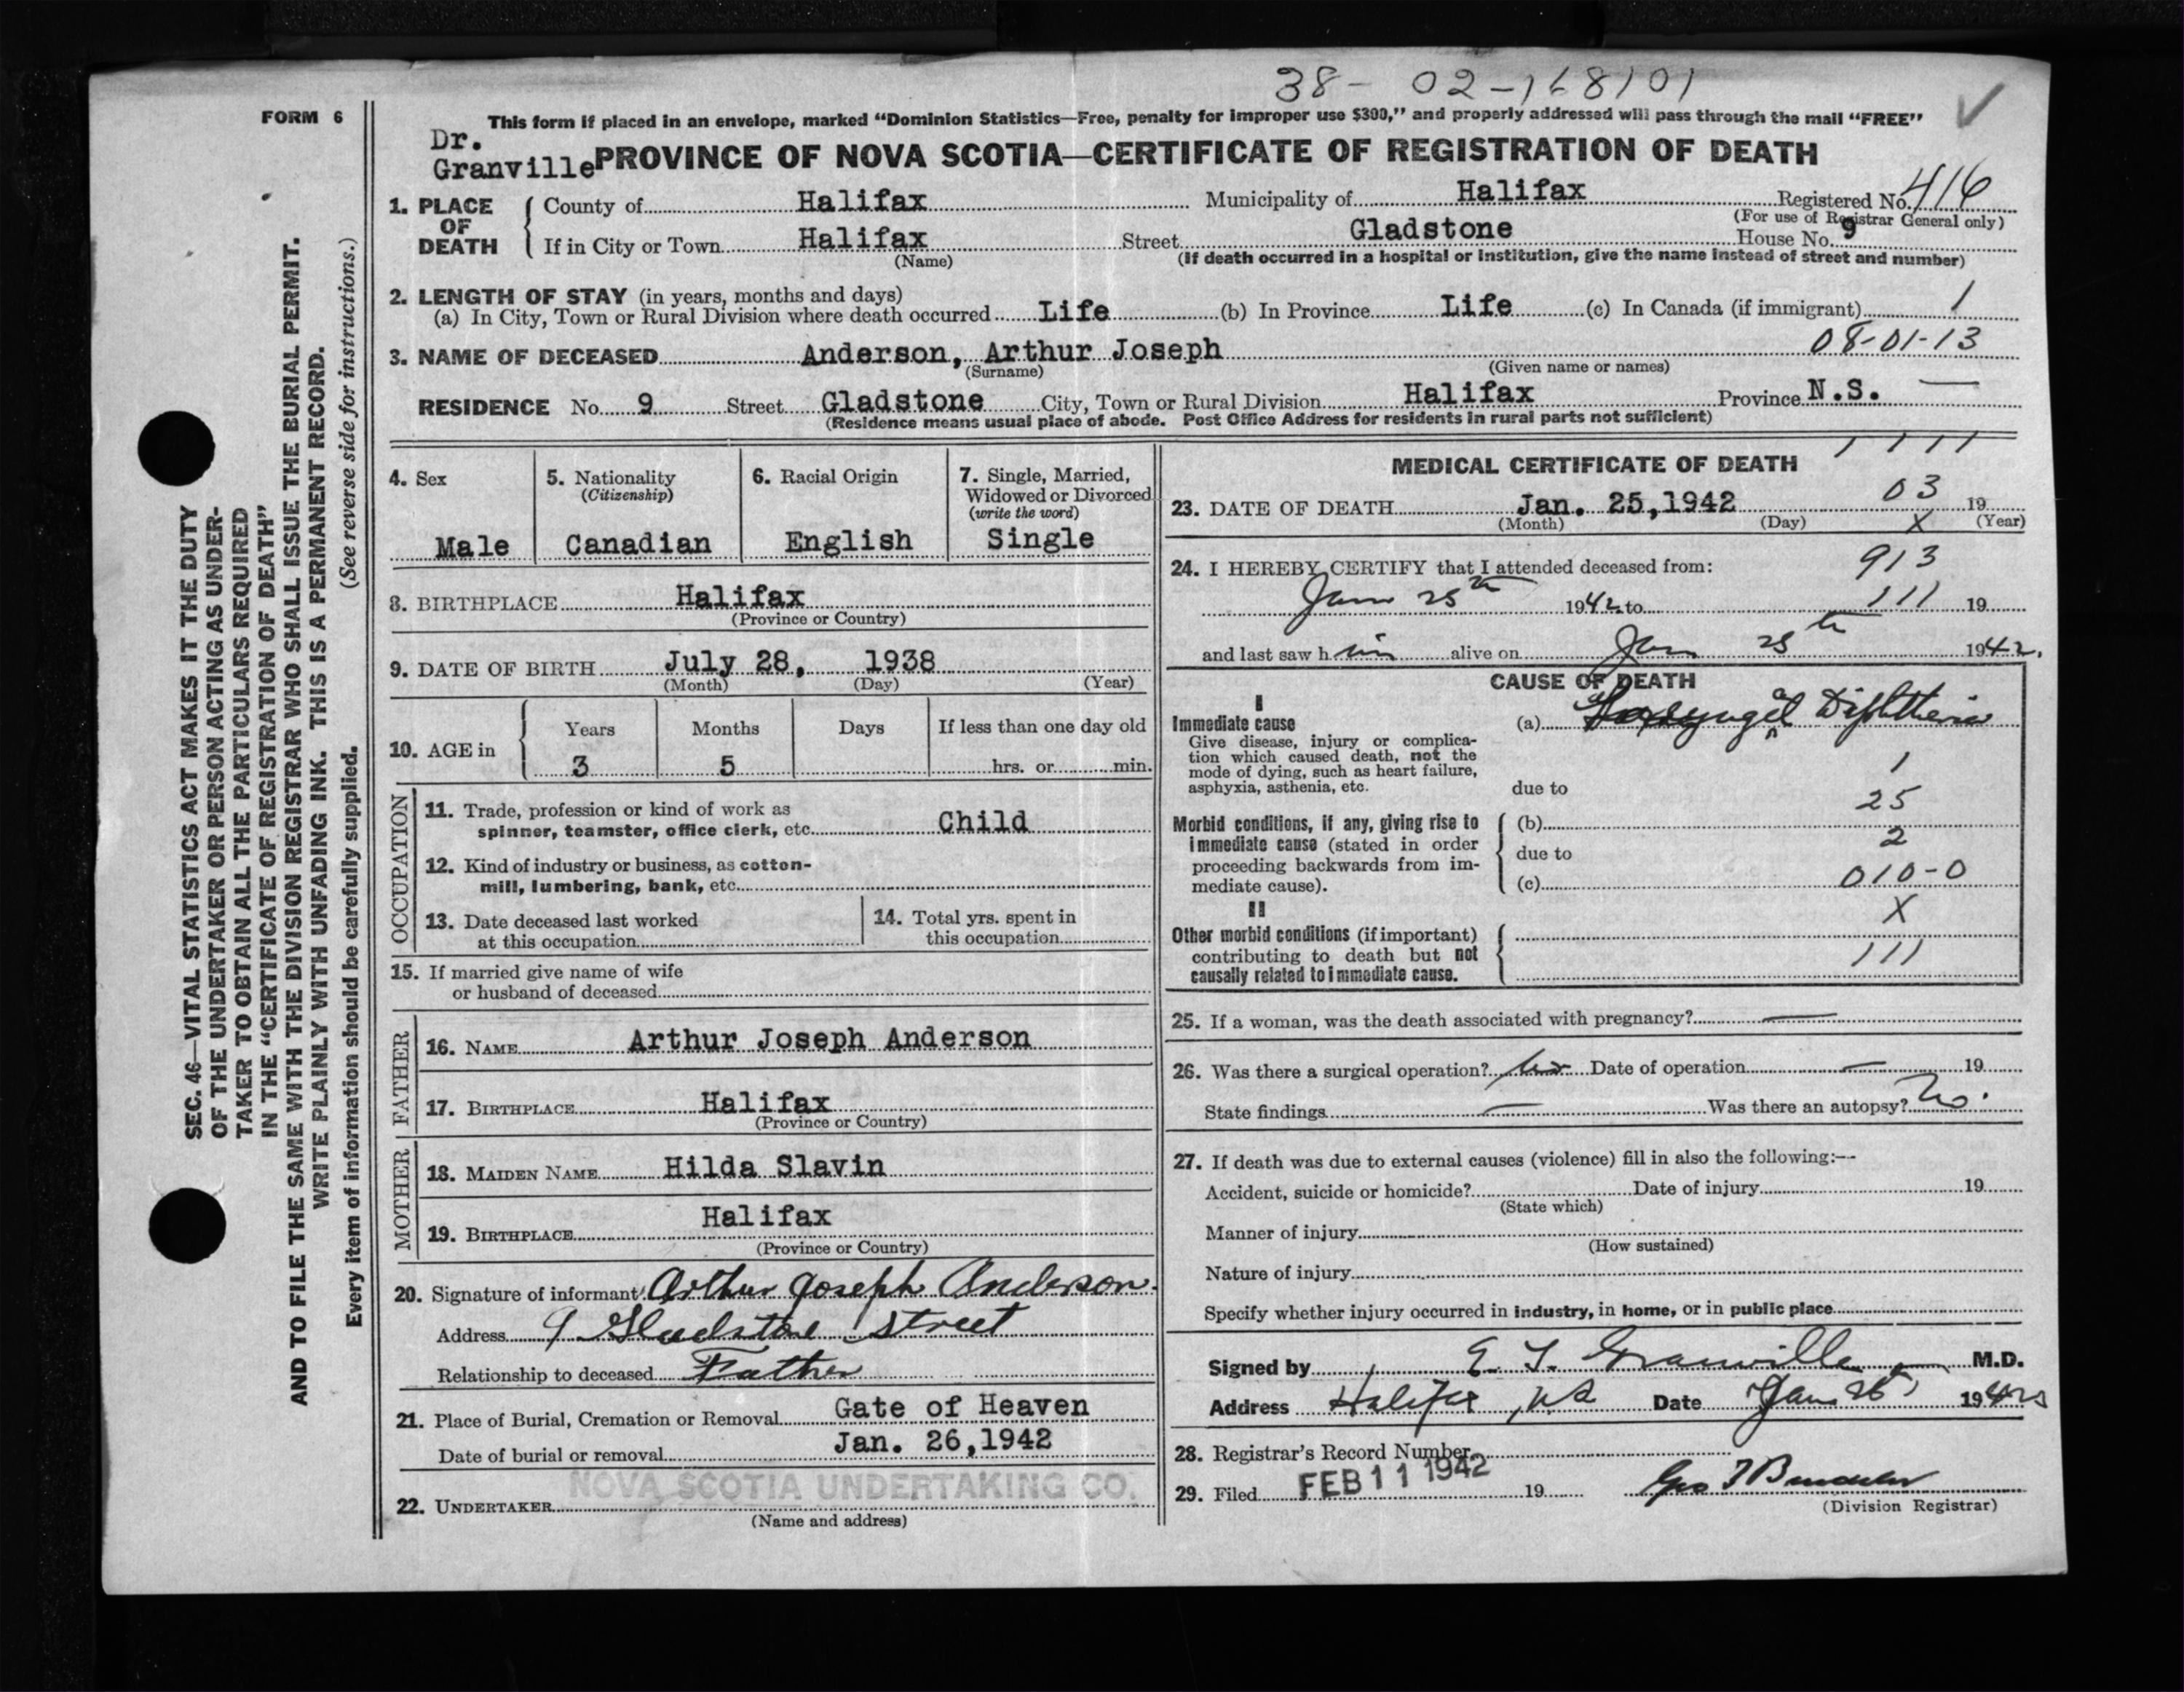 38- 02-168101
FORM 6
This form if placed in an envelope, marked "Dominion Statistics—Free, penalty for improper use $300," and properly addressed will pass through the mail "FREE"
Dr.
Granville
PROVINCE OF NOVA SCOTIA—CERTIFICATE OF REGISTRATION OF DEATH
1. PLACE OF DEATH
County of Halifax Municipality of Halifax Registered No. 416
(For use of Registrar General only)
If in City or Town Halifax Street Gladstone House No. 9
(Name) (If death occurred in a hospital or institution, give the name instead of street and number)
2. LENGTH OF STAY (in years, months and days)
(a) In City, Town or Rural Division where death occurred Life (b) In Province Life (c) In Canada (if immigrant) 1
08-01-13
3. NAME OF DECEASED Anderson, Arthur Joseph
(Surname) (Given name or names)
RESIDENCE No. 9 Street Gladstone City, Town or Rural Division Halifax Province N.S. —
(Residence means usual place of abode. Post Office Address for residents in rural parts not sufficient)
4. Sex
Male
5. Nationality
(Citizenship)
Canadian
6. Racial Origin
English
7. Single, Married,
Widowed or Divorced
(write the word)
Single
8. BIRTHPLACE Halifax
(Province or Country)
9. DATE OF BIRTH July 28, 1938
(Month) (Day) (Year)
10. AGE in
Years Months Days If less than one day old
3 5 hrs. or min.
OCCUPATION
11. Trade, profession or kind of work as
spinner, teamster, office clerk, etc. Child
12. Kind of industry or business, as cotton-
mill, lumbering, bank, etc.
13. Date deceased last worked
at this occupation
14. Total yrs. spent in
this occupation
15. If married give name of wife
or husband of deceased
FATHER
16. NAME Arthur Joseph Anderson
17. BIRTHPLACE Halifax
(Province or Country)
MOTHER
18. MAIDEN NAME Hilda Slavin
19. BIRTHPLACE Halifax
(Province or Country)
20. Signature of informant Arthur Joseph Anderson.
Address 9 Gladstone Street
Relationship to deceased Father
21. Place of Burial, Cremation or Removal Gate of Heaven
Date of burial or removal Jan. 26,1942
NOVA SCOTIA UNDERTAKING CO.
22. UNDERTAKER
(Name and address)
1111
MEDICAL CERTIFICATE OF DEATH
03
23. DATE OF DEATH Jan. 25,1942 19
(Month) (Day) X (Year)
24. I HEREBY CERTIFY that I attended deceased from: 913
Jan 25th 1942 to 111 19
and last saw him alive on Jan 25th 1942.
CAUSE OF DEATH
I
Immediate cause
Give disease, injury or complica-
tion which caused death, not the
mode of dying, such as heart failure,
asphyxia, asthenia, etc.
(a) Diphtheria
1
due to
25
Morbid conditions, if any, giving rise to
immediate cause (stated in order
proceeding backwards from im-
mediate cause).
(b)
2
due to
(c) 010-0
X
II
Other morbid conditions (if important)
contributing to death but not
causally related to immediate cause.
111
25. If a woman, was the death associated with pregnancy? —
26. Was there a surgical operation? No Date of operation — 19
State findings — Was there an autopsy? No.
27. If death was due to external causes (violence) fill in also the following:—
Accident, suicide or homicide? Date of injury 19
(State which)
Manner of injury
(How sustained)
Nature of injury
Specify whether injury occurred in industry, in home, or in public place
Signed by Granville M.D.
Address Halifax, NS Date Jan 1942
28. Registrar's Record Number
29. Filed FEB 11 1942 19
(Division Registrar)
SEC. 46—VITAL STATISTICS ACT MAKES IT THE DUTY
OF THE UNDERTAKER OR PERSON ACTING AS UNDER-
TAKER TO OBTAIN ALL THE PARTICULARS REQUIRED
IN THE "CERTIFICATE OF REGISTRATION OF DEATH"
AND TO FILE THE SAME WITH THE DIVISION REGISTRAR WHO SHALL ISSUE THE BURIAL PERMIT.
WRITE PLAINLY WITH UNFADING INK. THIS IS A PERMANENT RECORD.
(See reverse side for instructions.)
Every item of information should be carefully supplied.